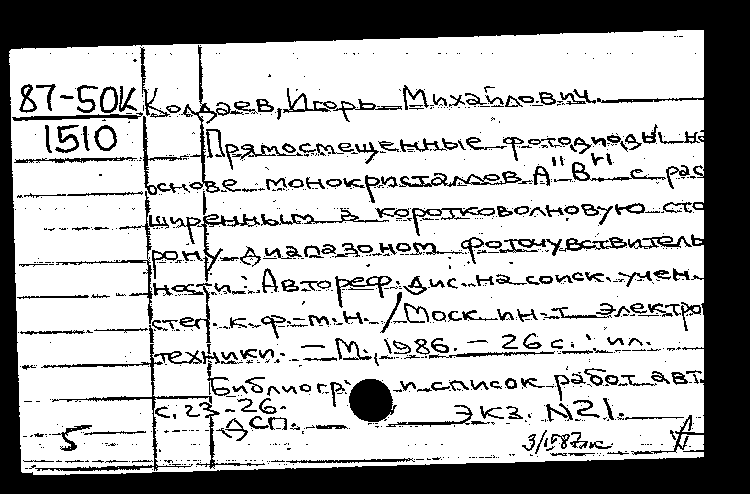 87-50К Колдаев, Игорь Михайлович.
1510
Прямосмещенные фотодиоды на
основе монокристаллов А"В"' с рас
ширенным в коротковолновую сто
рону диапазоном фоточувствитель
ности : Автореф. дис. на соиск. учен.
степ. к.ф.-т.н. / Моск. ин-т электро
техники. – М., 1986. – 26 с. : ил.
Библиогр и список работ авт.
с. 23-26.
Экз. N21.
ДСП.
5